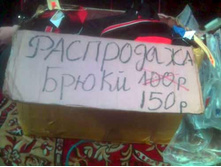 РАСПРОДАЖА
БРЮКИ 100Р
150Р